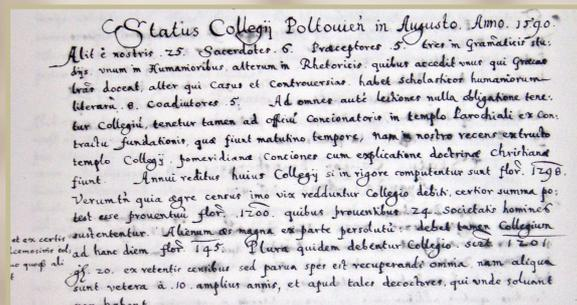 Status Collegij Poltouien̄ in Augusto. Anno. 1590.
Alit è nostris .25. Sacerdotes .6. Præceptores .5. tres in Gram̄aticis stu:
dijs. vnum in Humanioribus, alterum in Rhetoricis. quibus accedit vnus qui Græcas
lr̄as doceat, alter qui Casus et Controuersias. habet scholasticos humaniorum
literarū .8. Coadiutores .5. Ad omnes autē lectiones nulla obligatione tene:
tur Collegiū, tenetur tamen ad officiū Concionatoris in templo Parochiali ex con:
tractu fundationis, quæ fiunt matutino tempore, nam in nostro recens extructo
templo Collegij pomeridianæ Conciones cum explicatione doctrinæ Christianæ
fiunt. Annui reditus huius Collegij si in rigore computentur sunt flor. 1298.
Verumtn̄ quia ægre census imo vix redduntur Collegio debiti, certior summa po:
test esse prouentuū flor. 1200. quibus prouentibus .24. Societatis homines
sustententur. Alienum æs magna ex parte persolutū: debet tamen Collegium
et ex certis
ad hanc diem flor. 145. Plura quidem debentur Collegio, scilt 1201
gs. 20. ex retentis censibus sed parua spes est recuperandi omnia, nam aliqua
sunt vetera à .10. amplius annis, et apud tales decoctores, qui vnde soluant
non habent